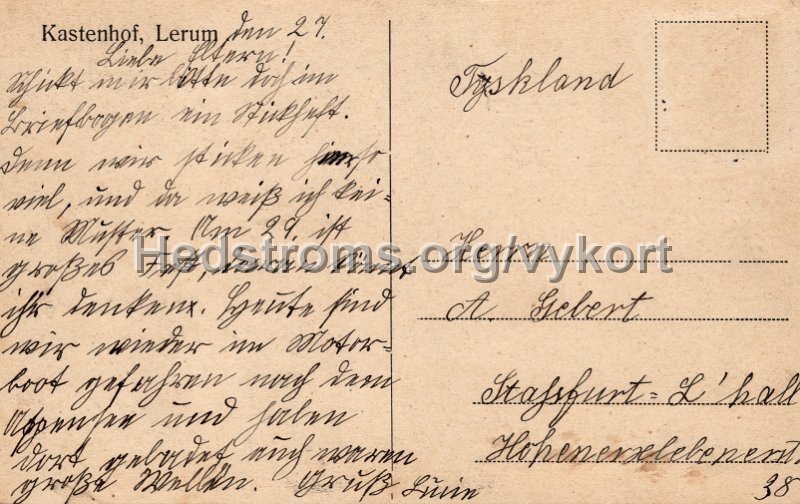 Kastenhof, Lerum den 27.
Liebe Eltern!
Schickt mir bitte doch im
Briefbogen ein Stickheft.
Denn wir sticken hier so
viel, und da weiß ich kei-
ne Muster. Am 29. ist
großes Fest, daran könnt
ihr denken. Heute sind
wir wieder im Motor-
boot gefahren nach dem
Aspensee und haben
dort gebadet, auch waren
große Wellen. Gruß
Tyskland
Herrn
A. Gebert
Stassfurt-L'hall
Hohenerxlebener
38
Hedstroms.org/vykort